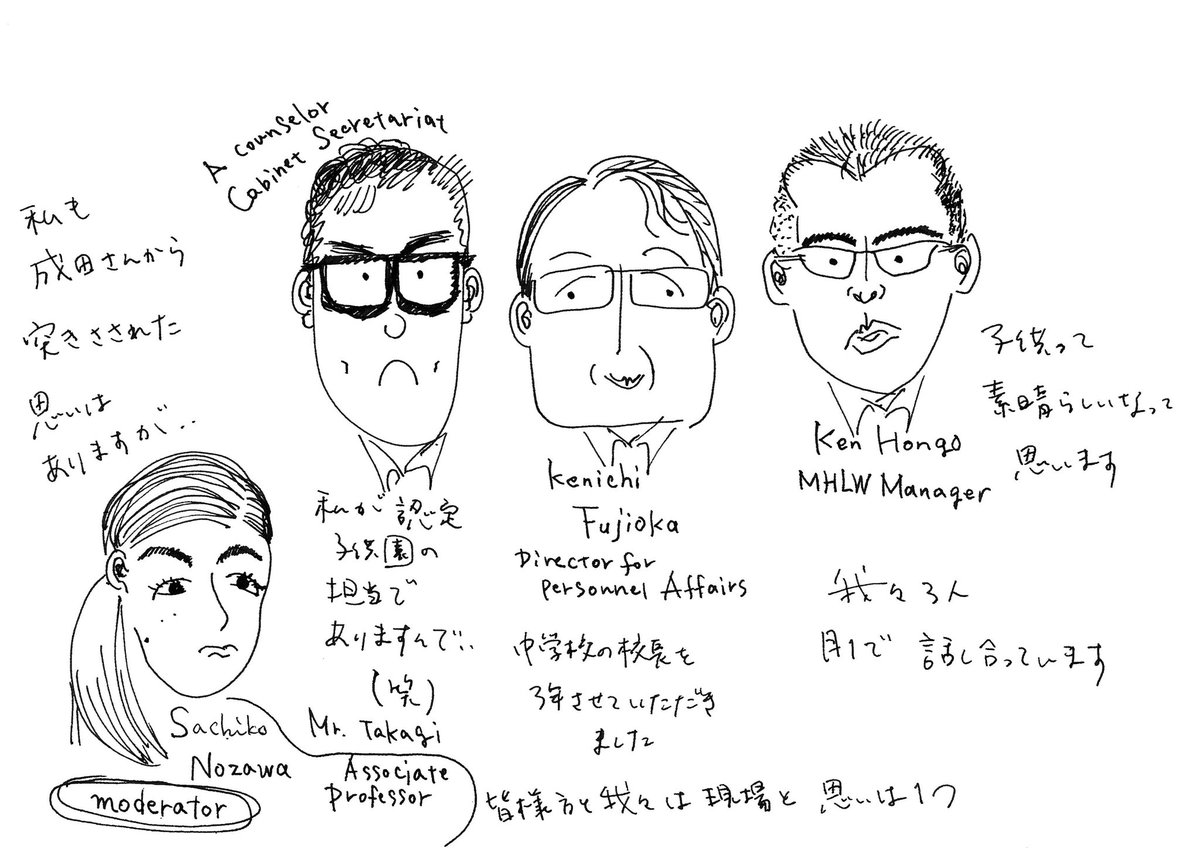 A counselor
Cabinet Secretariat
私も
成田さんから
突きさされた
思いは
ありますが‥
私が認定
子供園の
担当で
ありますんで‥
(笑)
Mr. Takagi
Kenichi
Fujioka
Director for
personnel Affairs
中学校の校長を
3年させていただき
ました
Ken Hongo
MHLW Manager
子供って
素晴らしいなって
思います
我々3人
月1で話し合っています
Sachiko
Nozawa
moderator
Associate
professor
皆様方と我々は現場と思いは1つ